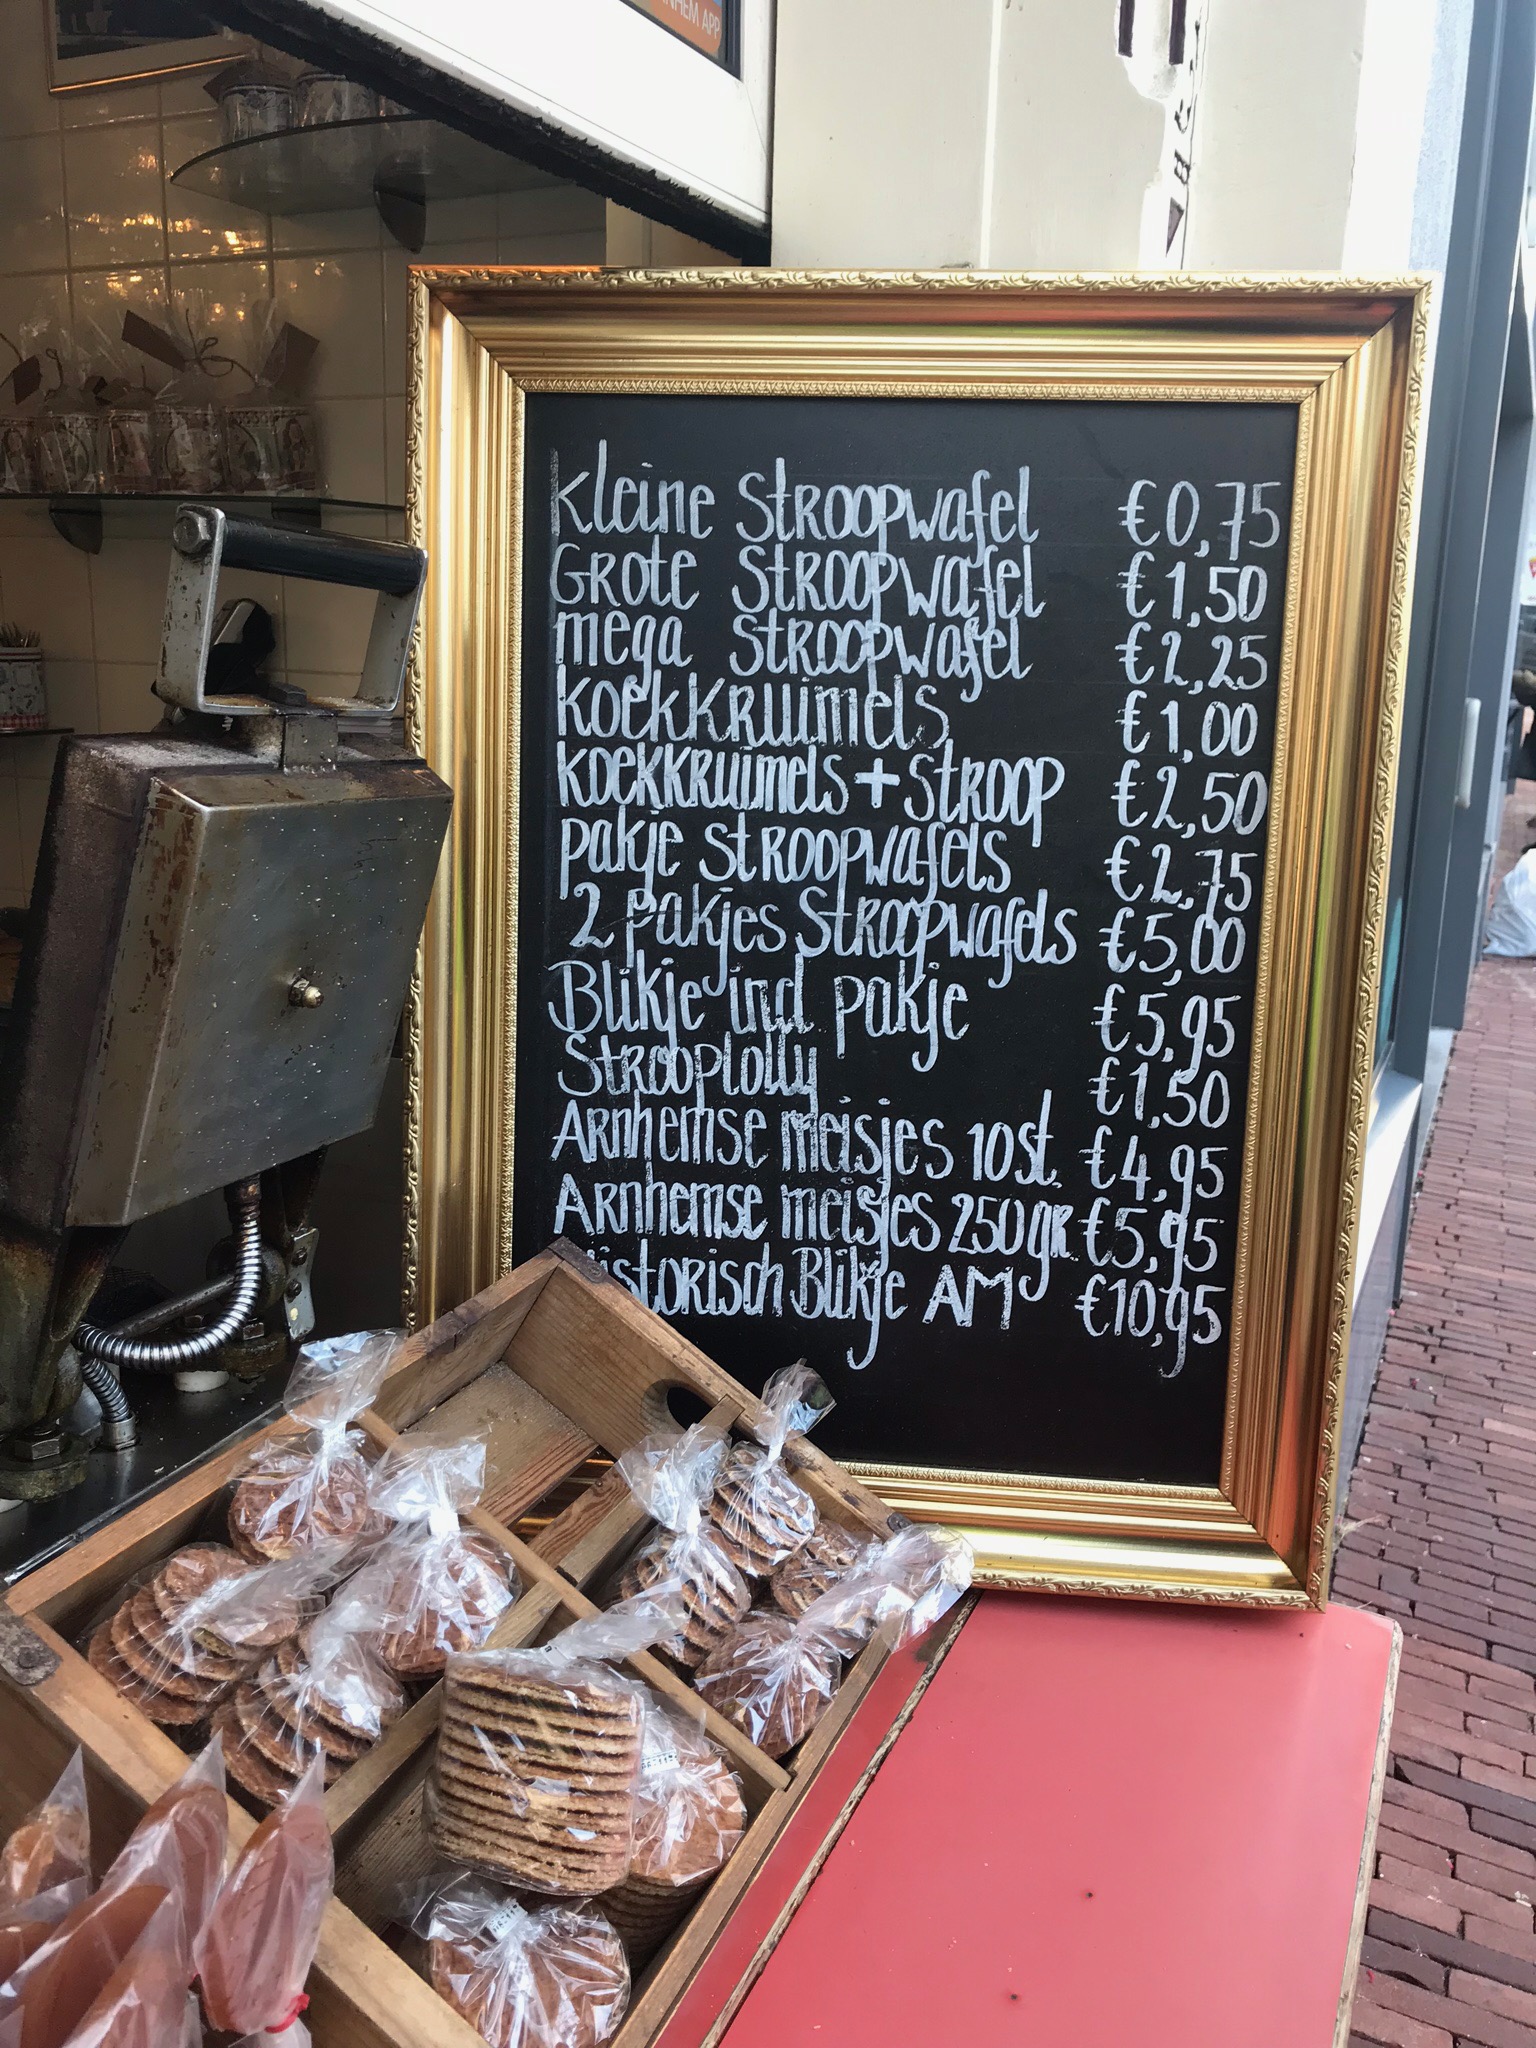 NHEM APP
Kleine Stroopwafel €0,75
Grote Stroopwafel €1,50
mega Stroopwafel €2,25
Koekkruimels €1,00
Koekkruimels + Stroop €2,50
pakje stroopwafels €2,75
2 pakjes Stroopwafels €5,00
Blikje incl pakje €5,95
Strooplolly €1,50
Arnhemse meisjes 10st. €4,95
Arnhemse meisjes 250gr €5,95
Historisch Blikje AM €10,95